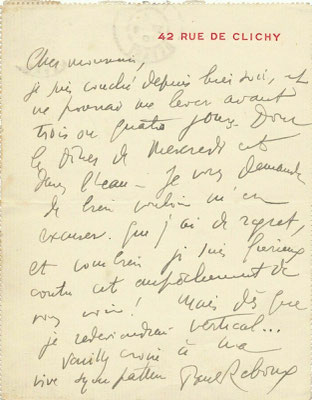 42 RUE DE CLICHY
Cher monsieur,
je suis couché depuis hier soir, et
ne pourrai me lever avant
trois ou quatre jours. Donc
le dîner de Mercredi est
dans l'eau — Je vous demande
de bien vouloir m'en
excuser. Que j'ai de regret,
et combien je suis furieux
contre cet empêchement de
vous voir ! Mais dès que
je redeviendrai vertical...
Veuillez croire à ma
vive sympathie
Paul Reboux